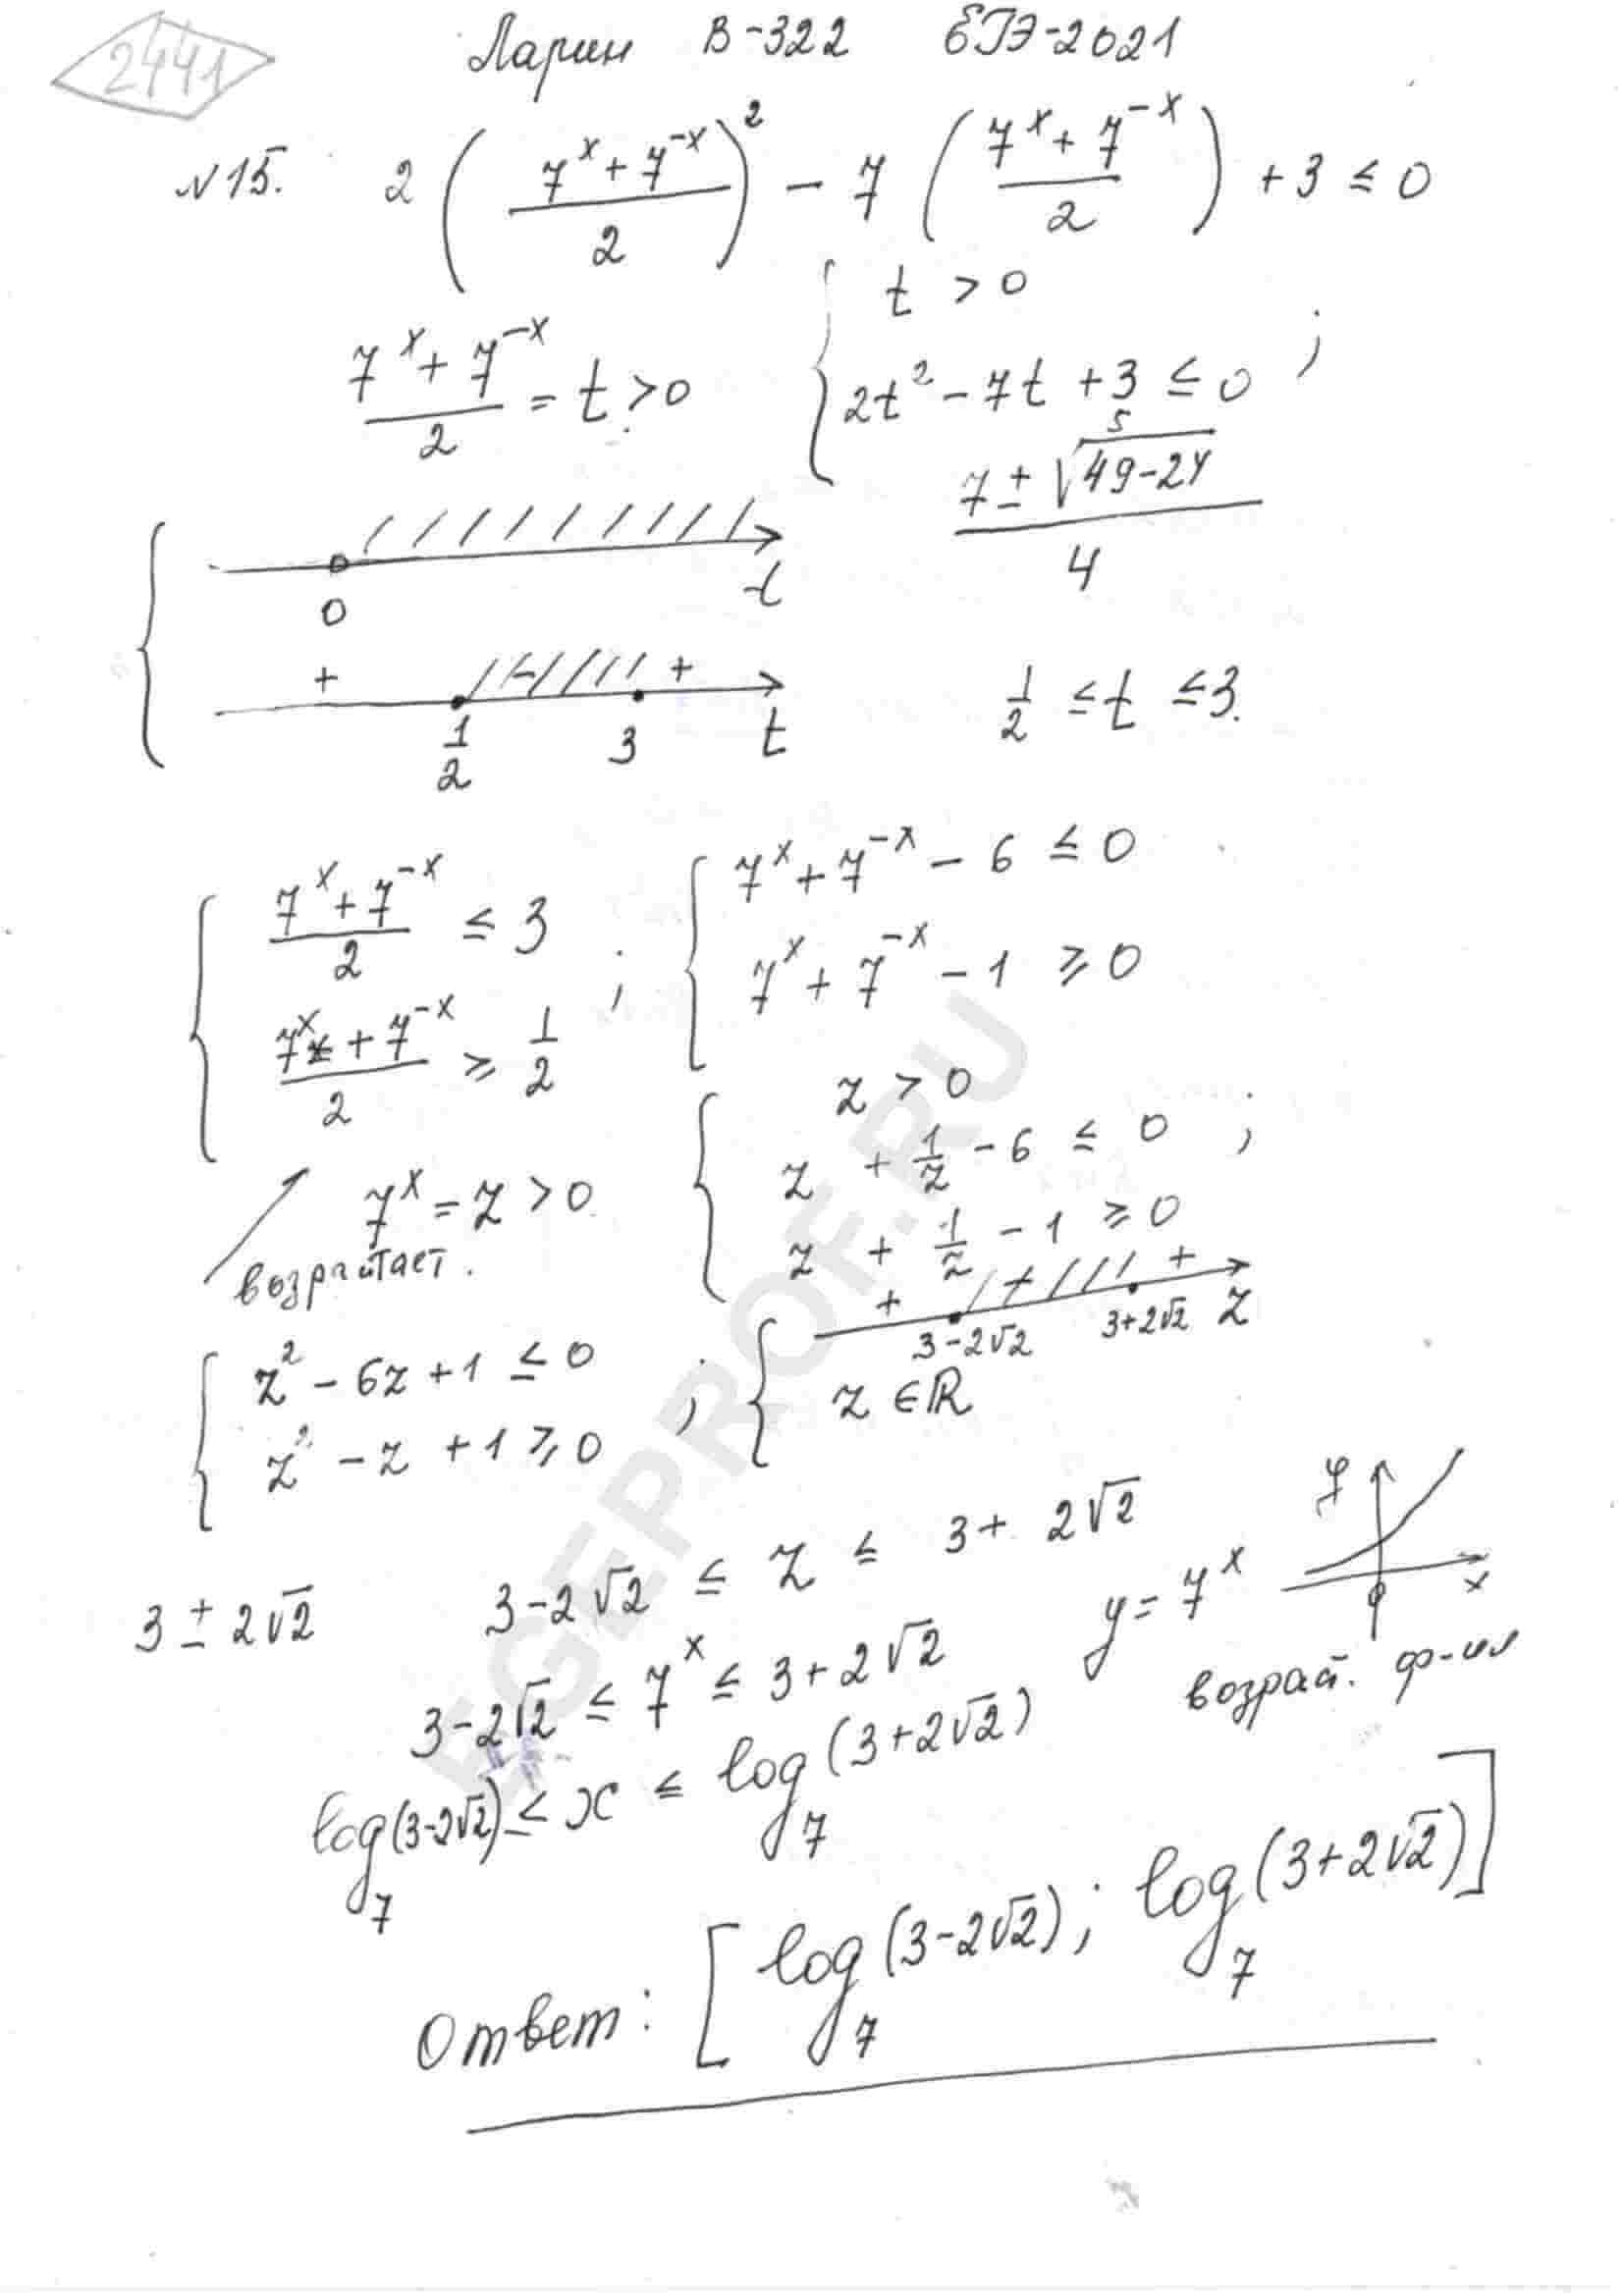 2441
Ларин В-322 ЕГЭ-2021
№15. 2 ( (7^x + 7^{-x})/2 )^2 - 7 ( (7^x + 7^{-x})/2 ) + 3 ≤ 0
(7^x + 7^{-x})/2 = t > 0 { t > 0
2t^2 - 7t + 3 ≤ 0 ;
(7 ± √(49-24))/4 5
0 t
+ - +
1/2 3 t 1/2 ≤ t ≤ 3.
{ (7^x + 7^{-x})/2 ≤ 3 ; { 7^x + 7^{-x} - 6 ≤ 0
(7^x + 7^{-x})/2 ≥ 1/2 7^x + 7^{-x} - 1 ≥ 0
7^x = z > 0 { z > 0
z + 1/z - 6 ≤ 0 ;
z + 1/z - 1 ≥ 0
возрастает.
+ - +
3-2√2 3+2√2 z
{ z^2 - 6z + 1 ≤ 0 ; { z ∈ ℝ
z^2 - z + 1 ≥ 0
3 ± 2√2 3-2√2 ≤ z ≤ 3+2√2
y = 7^x y x 0
возраст. ф-ия
3-2√2 ≤ 7^x ≤ 3+2√2
log_7(3-2√2) ≤ x ≤ log_7(3+2√2)
Ответ: [ log_7(3-2√2) ; log_7(3+2√2) ]
EGEPROF.RU